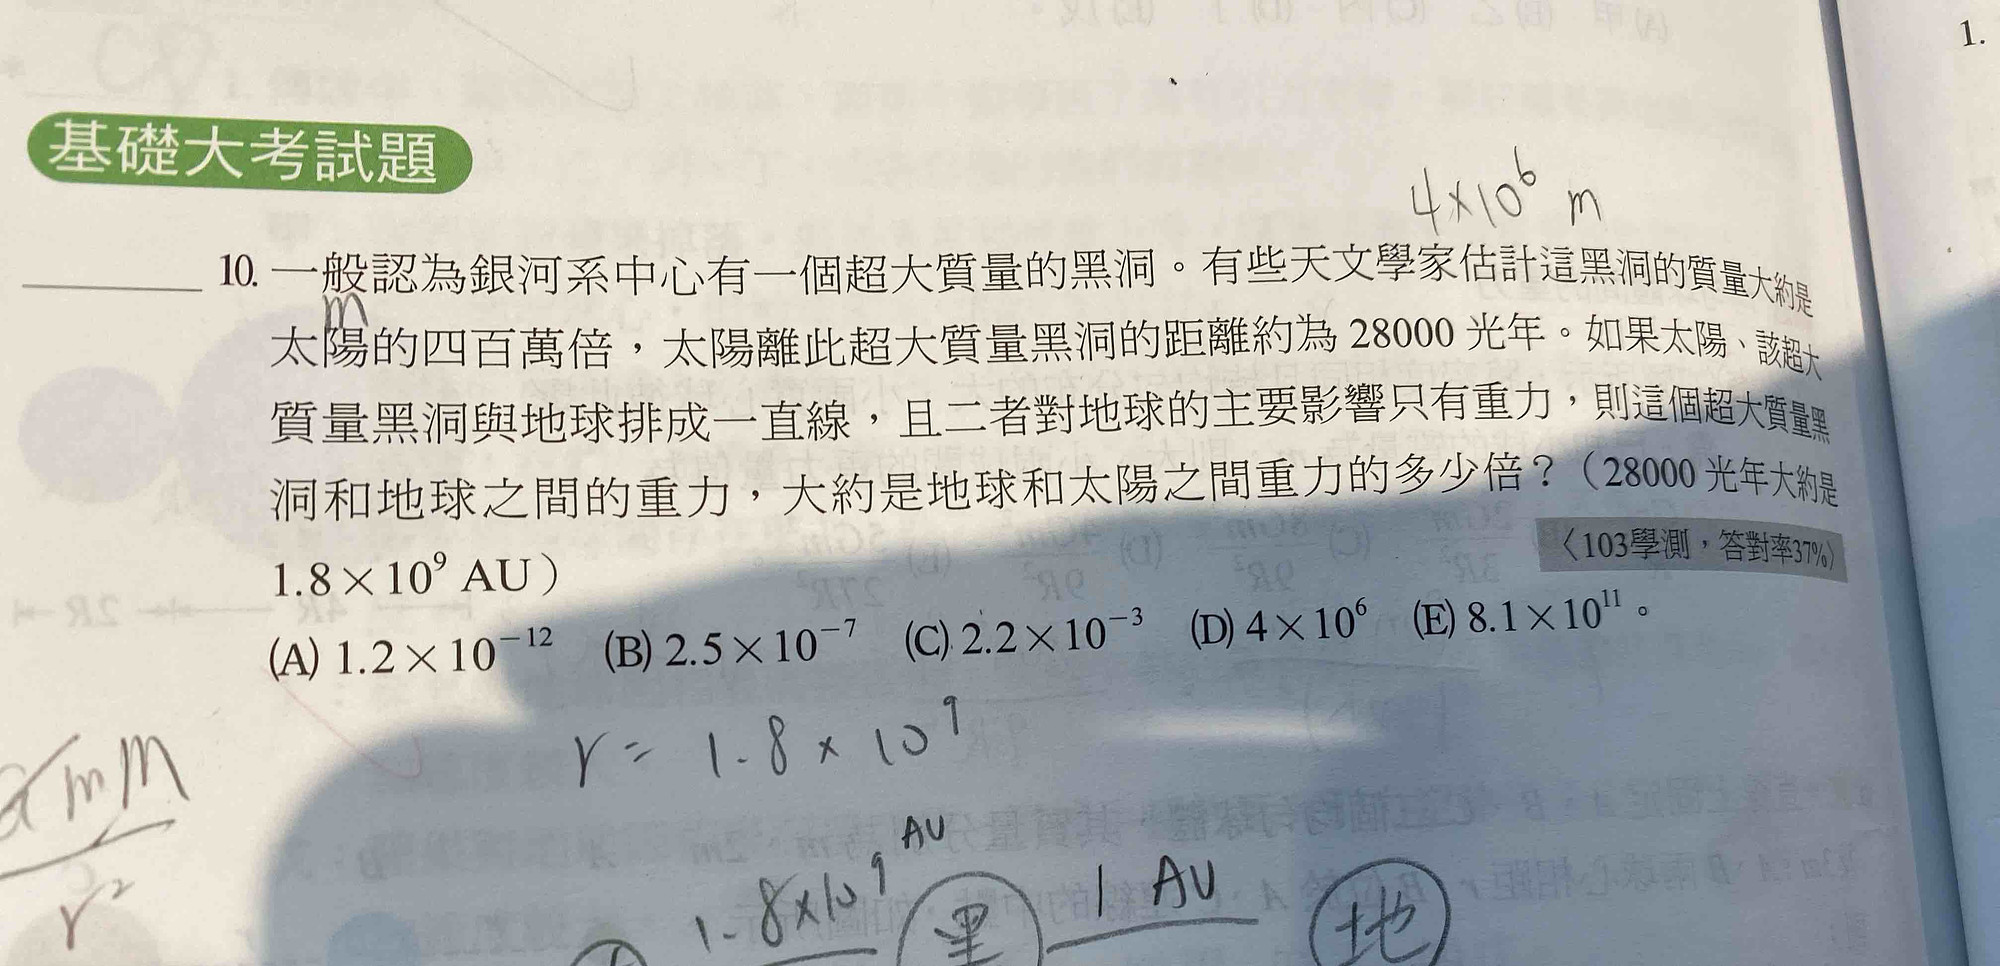 基礎大考試題
1.
4×10⁶ m
10. 一般認為銀河系中心有一個超大質量的黑洞。有些天文學家估計這黑洞的質量大約是
m
太陽的四百萬倍，太陽離此超大質量黑洞的距離約為 28000 光年。如果太陽、該超大
質量黑洞與地球排成一直線，且二者對地球的主要影響只有重力，則這個超大質量黑
洞和地球之間的重力，大約是地球和太陽之間重力的多少倍？（28000 光年大約是
1.8×10⁹ AU）
〈103學測，答對率37%〉
(A) 1.2×10⁻¹² (B) 2.5×10⁻⁷ (C) 2.2×10⁻³ (D) 4×10⁶ (E) 8.1×10¹¹。
r = 1.8×10⁹
mM
r²
1.8×10⁹ AU
黑
1 AU
地